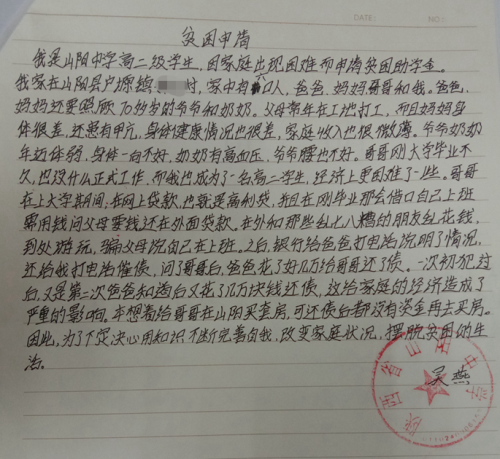 DATE: NO:
贫困申请
我是山阳中学高二级学生,因家庭出现困难而申请贫困助学金。
我家在山阳县户塬镇 村,家中有六口人,爸爸,妈妈哥哥和我。爸爸,
妈妈还要照顾70多岁的爷爷和奶奶。父母常年在工地打工,而且妈妈身
体很差,还患有甲亢,身体健康情况也很差,家庭收入也很微薄。爷爷奶奶
年迈体弱,身体一向不好,奶奶有高血压,爷爷腰也不好。哥哥刚大学毕业不
久,也没什么正式工作,而我也成为了一名高二学生,经济上更困难了一些。哥哥
在上大学期间,在网上贷款,也就是高利贷,并且在刚毕业那会借口自己上班
需用钱问父母要钱还在外面贷款。在外和那些乱七八糟的朋友乱花钱,
到处游玩,骗父母说自己在上班。之后,银行给爸爸打电话说明了情况,
还给我打电话催债,问了哥哥后,爸爸花了好几万给哥哥还了债。一次初犯过
后,又是第二次爸爸知道后又花了几万块钱还债,这给家庭的经济造成了
严重的影响。本想着给哥哥在山阳买套房,可还债后都没有资金再去买房。
因此,为了下定决心用知识不断完善自我,改变家庭状况,摆脱贫困的生
活。
吴燕
陕西省山阳中学